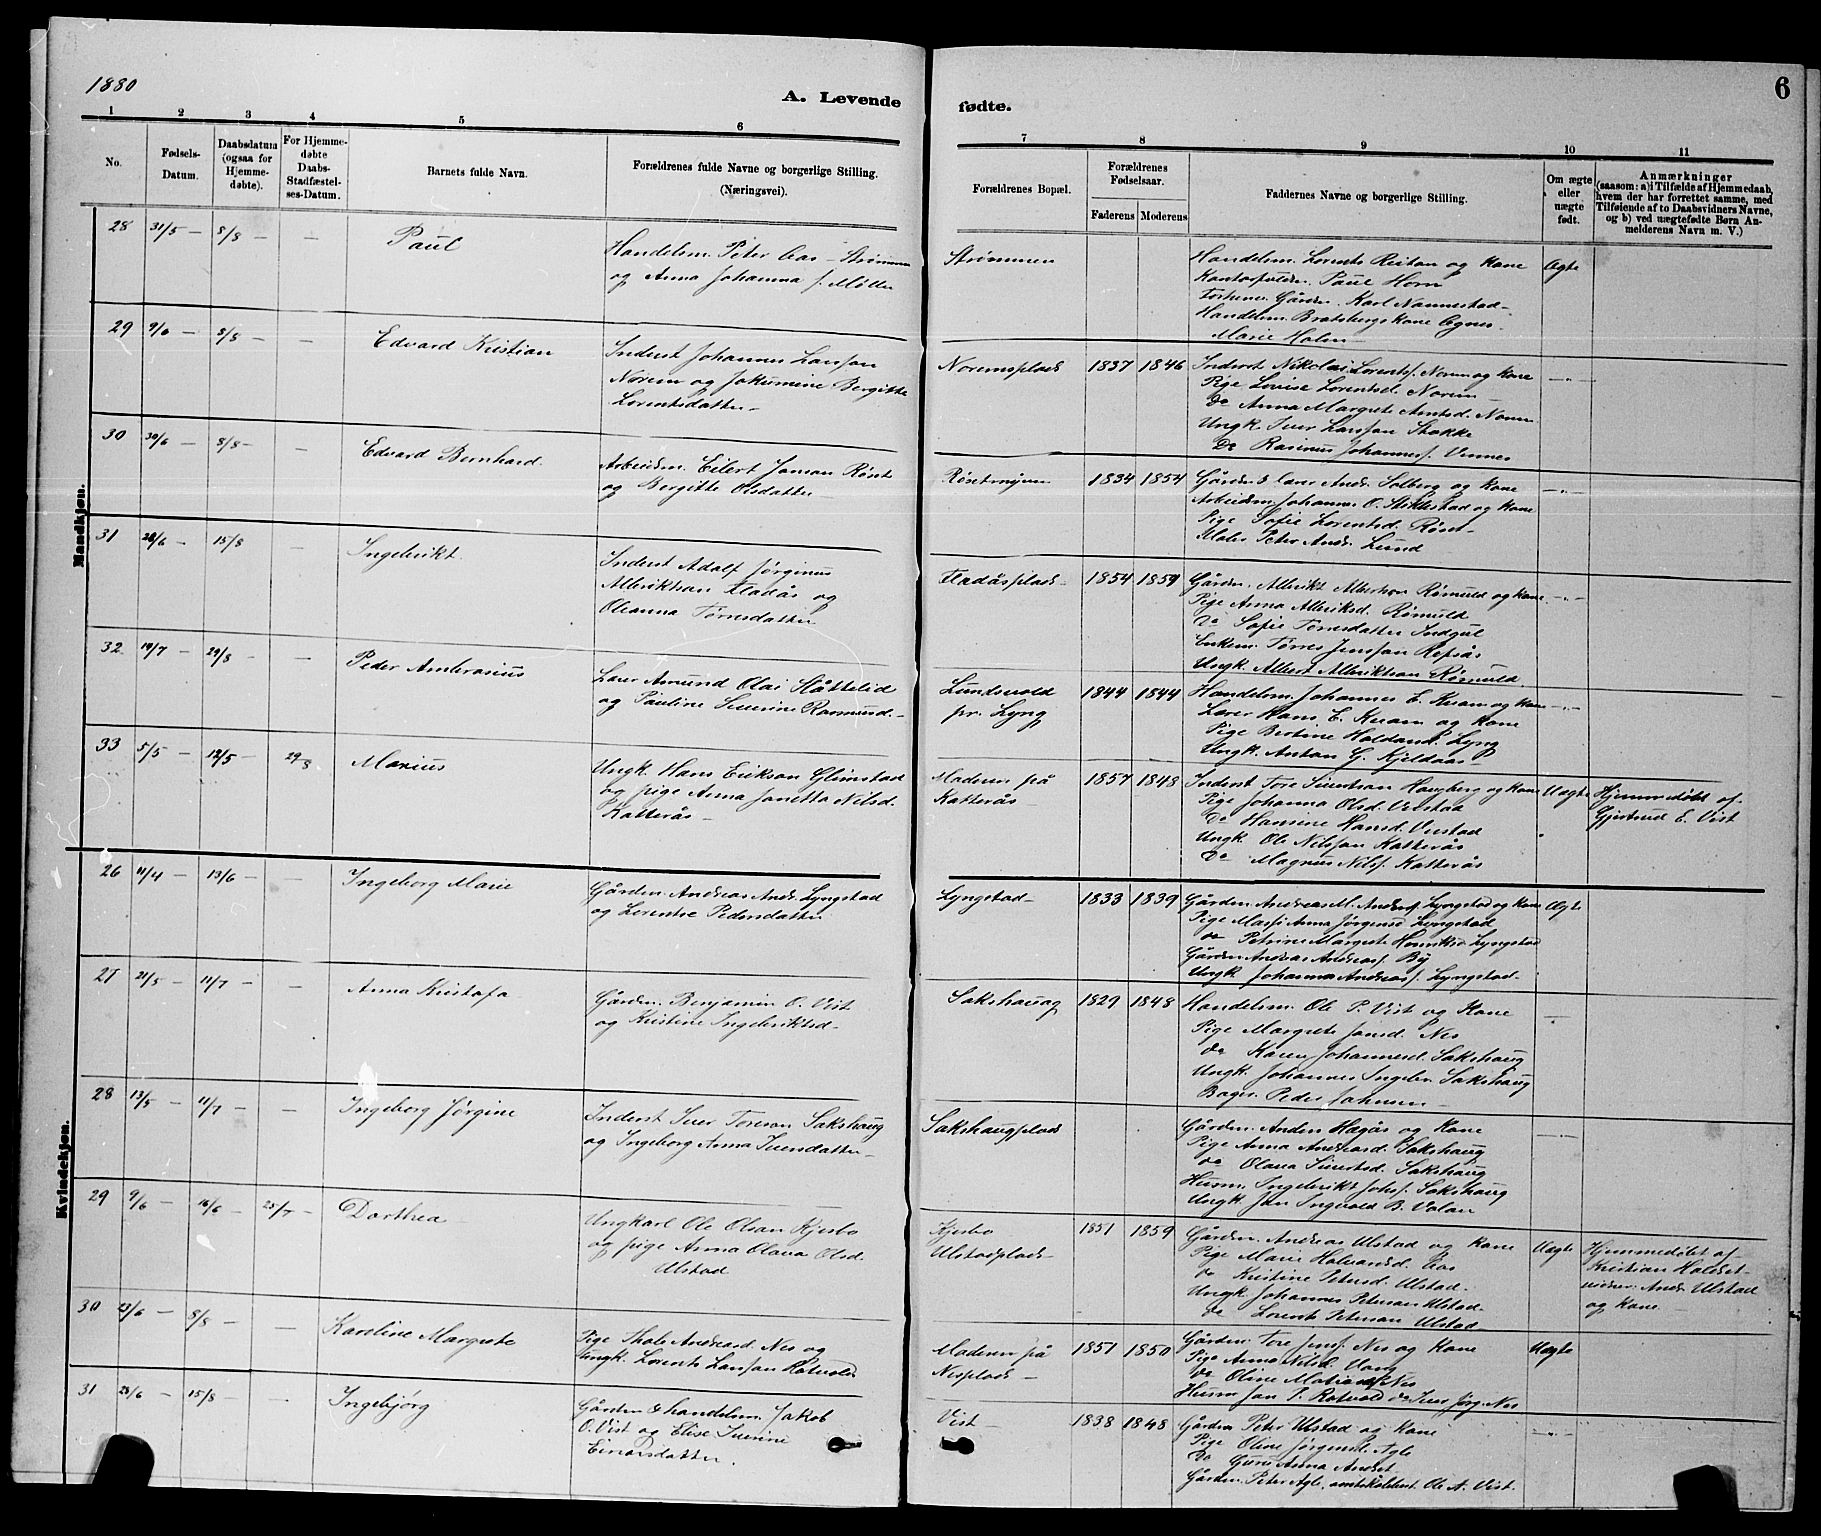 1880
A. Levende fødte.
6
1 2 3 4 5 6 7 8 9 10 11
No.
Fødsels-Datum.
Daabsdatum (ogsaa for Hjemmedøbte).
For Hjemmedøbte Daabs-Stadfæstelses-Datum.
Barnets fulde Navn.
Forældrenes fulde Navne og borgerlige Stilling. (Næringsvei).
Forældrenes Bopæl.
Forældrenes Fødselsaar.
Faderens Moderens
Faddernes Navne og borgerlige Stilling.
Om ægte eller uægte født.
Anmærkninger
(saasom: a) i Tilfælde af Hjemmedaab, hvem der har forrettet samme, med Tilføiende af to Daabsvidners Navne, og b) ved uægtefødte Børn Anmelderens Navn m. V.)
Mandkjøn.
28 31/5 — 8/8 — — Paul
Handelsm. Peter Aas — Strømmen
og Anna Johanna f. Møller
Strømmen
Handelsm. Lorents Reitan og Kone
Paul Horn
Gårdbr. Karl Nannestad
Handelsm. Bratsbergs Kone Agnes
Marie Holm
Ægte
29 9/6 — 8/8 — Edvard Kristian
Inderst Johannes Larssen
Norem og Jokumine Bergitte
Lorentsdatter
Noremsplads 1837 1846
Inderst Nikolai Lorentsf. Norem og Kone
Pige Lovise Lorentsd. Norem
Do Anna Margrete Arntsd. Norem
Ungk. Iver Larssen Stokke
Do Rasmus Johannesf. Vennes
30 30/6 — 8/8 — Edvard Bernhard
Arbeidsm. Eilert Jonsen Røset
og Bergitte Olsdatter
Røsetmyren 1834 1854
Gårdbr. & Lærer Andr. Solberg og Kone
Arbeidsm. Johannes O. Stiklestad og Kone
Pige Sofie Lorentsd. Røset
Maler Peter Andr. Lund
31 28/6 — 15/8 — Ingebrikt
Inderst Adolf Jørginus
Albriktsen Fladås og
Oleanna Tørresdatter
Fladåsplads 1854 1859
Gårdbr. Albrikt Albertsen Rømuld og Kone
Pige Anna Albriksd. Rømuld
Do Sofie Tørresdatter Indgul
Enkem. Tørres Jenssen Refsås
Ungk. Albert Albriktsen Rømuld
32 19/7 — 29/8 — Peder Ambrosius
Lærer Amund Olai Slåttelid
og Pauline Severine Rasmusd.
Lundsvold
pr. Lyng 1844 1844
Handelsm. Johannes E. Kvam og Kone
Lærer Hans E. Kvam og Kone
Pige Bertine Haldand. Lyng
Ungk. Anton G. Kjeldaas
33 5/5 — 12/5 — 29/8 Marius
Ungk. Hans Erikson Glimstad
og pige Anna Janetta Nilsd.
Katterås
Moderen på
Katterås 1857 1848
Inderst Tore Sivertsen Hangberg og Kone
Pige Johanna Olsd. Verstad
Do Hansine Hansd. Verstad
Ungk. Ole Nilssen Katterås
Do Magnus Nilsf. Katterås
Uægte
Hjemmedøbt af
Gjertrud E. Vist
Kvindekjøn.
26 11/4 — 13/6 — Ingeborg Marie
Gårdbr. Andreas Andr. Lyngstad
og Lorentse Pedersdatter
Lyngstad 1833 1839
Gårdbr. Andreas M. Andersf. Lyngstad og Kone
Pige Massi Anna Jørgense Lyngstad
do Petrine Margrete Henriksd. Lyngstad
Gårdbr. Andreas Andreasf. By
Ungk. Johannes Andreasf. Lyngstad
Ægte
27 21/5 — 11/7 — Anna Kristofa
Gårdbr. Benjamin O. Vist
og Kristine Ingebriktsd.
Sakshaug 1829 1848
Handelsm. Ole P. Vist og Kone
Pige Margrete Jansd. Nes
do Karen Johannesd. Sakshaug
Ungk. Johannes Ingebr. Sakshaug
Bager Peder Johnsen
28 13/5 — 11/7 — Ingeborg Jørgine
Inderst Iver Toresen Sakshaug
og Ingeborg Anna Iversdatter
Sakshaugplads
Gårdbr. Anders Hegås og Kone
Pige Anna Andreasd. Sakshaug
do Olava Sivertsd. Sakshaug
Husm. Ingebrikt Johsf. Sakshaug
Ungk. Jon Ingvald B. Valan
29 9/6 — 16/6 — 25/7 — Dorthea
Ungkarl Ole Olsen Kjesbo
og pige Anna Olava Olsd.
Ulstad
Kjesbo
Ulstadplads 1851 1859
Gårdbr. Andreas Ulstad og Kone
Pige Marie Halvardsd. Aas
do Kristine Petersd. Ulstad
Ungk. Johannes Petersen Ulstad
do Lorents Petersen Ulstad
Uægte
Hjemmedøbt af
Kristian Haldset
vidner: Andr. Ulstad
og Kone
30 23/6 — 8/8 — Karoline Margrete
Pige Thale Andreasd. Nes og
ungk. Lorents Larssen Rotvold
Moderen på
Nesplads 1851 1850
Gårdbr. Tore Jensf. Nes og Kone
Pige Anna Nilsd. Vang
do Oline Matiasd. Nes
Husm. Jon P. Rotvold do Iver Jørg. Nes
Uægte
31 28/6 — 15/8 — Ingebjørg
Gårdbr. & handelsm. Jakob
O. Vist og Elise Iverine
Einarsdatter
Vist 1838 1848
Gårdbr. Peter Ulstad og Kone
Pige Oline Jørgensd. Agle
Do Guru Anna Andset
Gårdbr. Peter Agle, Ole A. Vist.